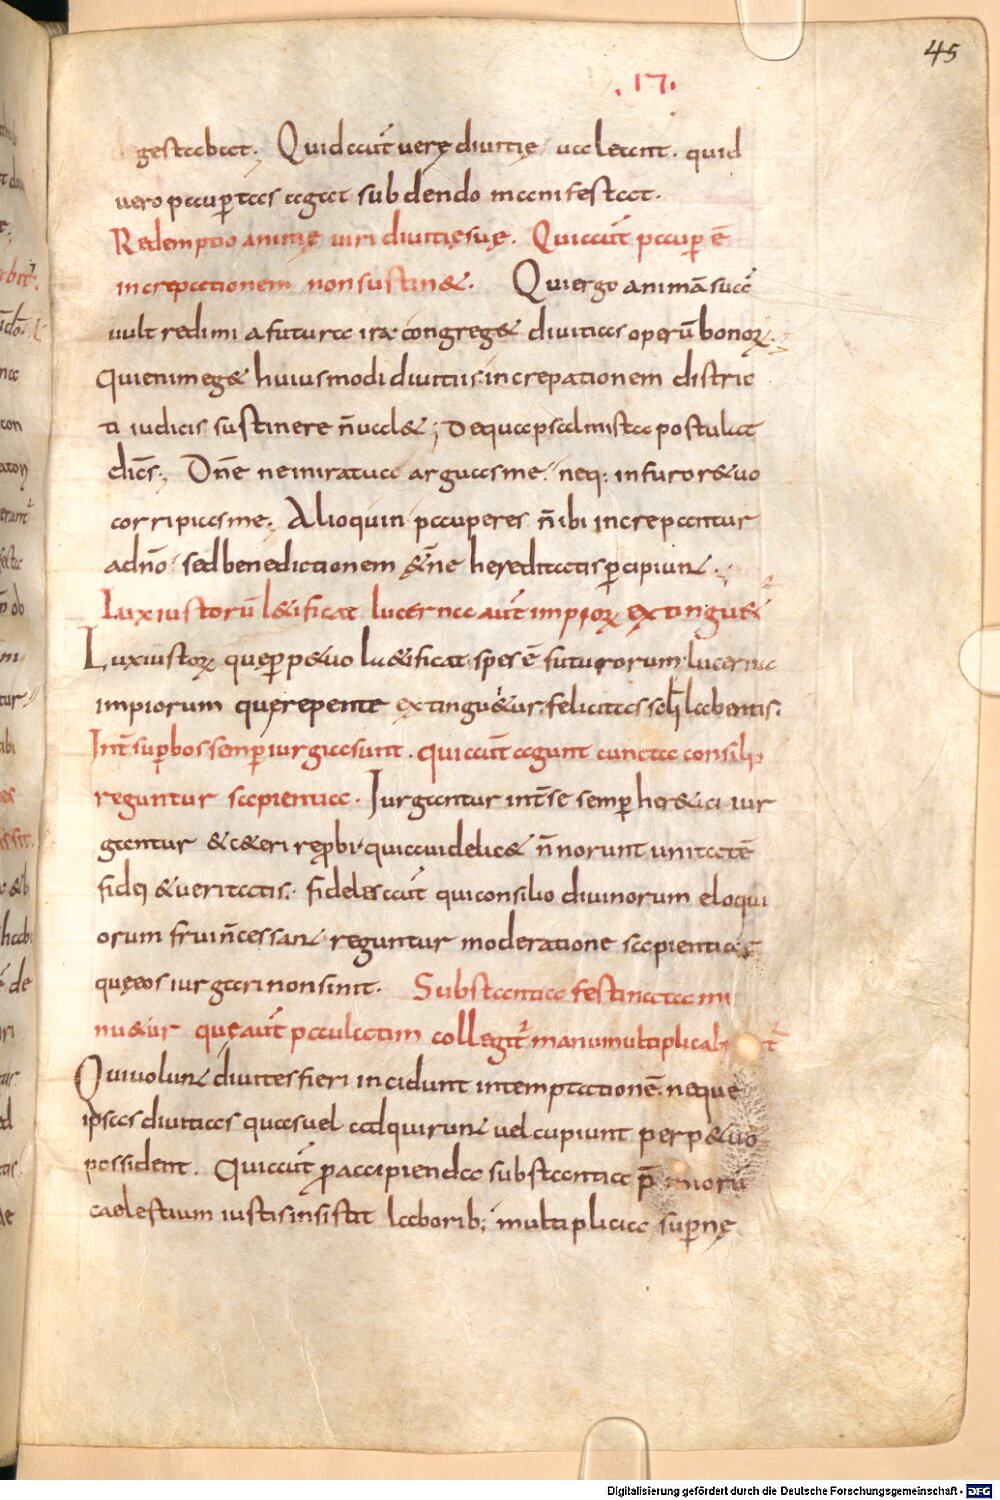 45
.17.
gestabat. Quid aut̄ uerę diuitię ualeant. quid
uero paup̱tas agat subdendo manifestat.
Redemptio animę uiri diuitię suę. Qui aut̄ paup̱ ē
increpationem non sustin&. Qui ergo animā suā
uult redimi a futura ira congreg& diuitias operū bonoꝝ.
Qui enim eg& huiusmodi diuitiis increpationem distric
ti iudicis sustinere ñ ual&; De qua psalmista postulat
dicēs; Dn̄e ne in ira tua arguas me. neq; in furor& uo
corripias me. Alioquin pauperes ñ ibi increpantur
a dn̄o. sed benedictionem &ñe hereditatis p̱cipiunt.
Lux iustorū l&ificat lucerna aut̄ impioꝝ extingu&ͬ
Lux iustoꝝ quę perp&uo l&ificat spes ē futurorum. lucerna
impiorum quę repente extingu&ur. felicitas sc̄li labentis.
Int̄ sup̱bos semp̱ iurgia sunt. qui aut̄ agunt cuncta consilio
reguntur sapientia. Iurgantur int̄ se semp̱ her&ici iur
gantur & c&eri rep̱bi. quia uidelic& ñ norunt unitatē
fidei & ueritatis. fideles aut̄ qui consilio diuinorum eloqui
orum frui ñ cessant reguntur moderatione sapientiae
quę eos iurgari non sinit. Substantia festinata mi
nu&ur quę aut̄ paulatim collegit̃ manu multiplicabit̃
Qui uolunt diuites fieri incidunt in temptationē. neque
ipsas diuitias quas uel adquirunt uel cupiunt perp&uo
possident. Qui aut̄ p̱ accipienda substantia p̄miorū
caelestium iustis insistit laborib; multiplicia sup̱nę
Digitalisierung gefördert durch die Deutsche Forschungsgemeinschaft - DFG